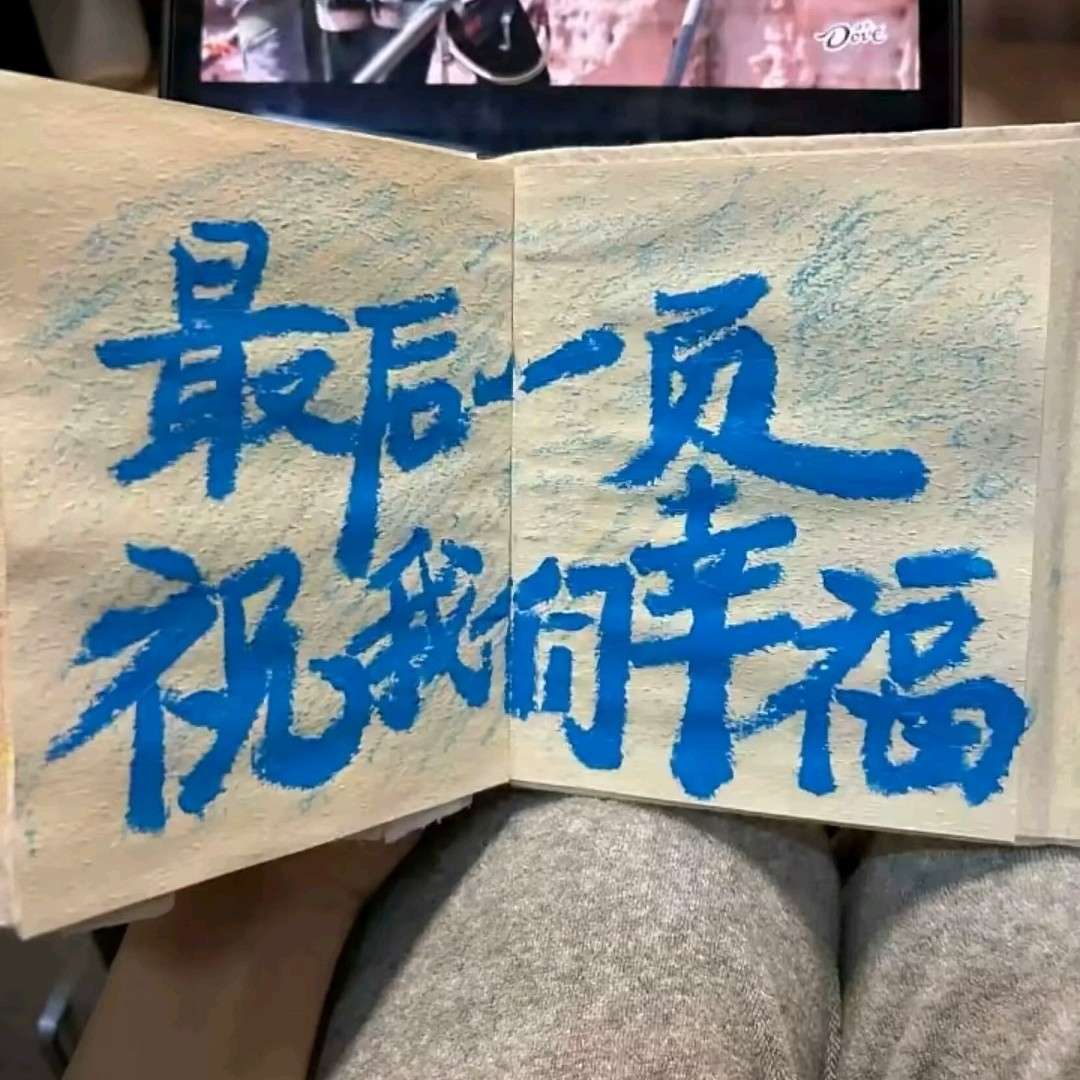 Dove
最后一页
祝我们幸福